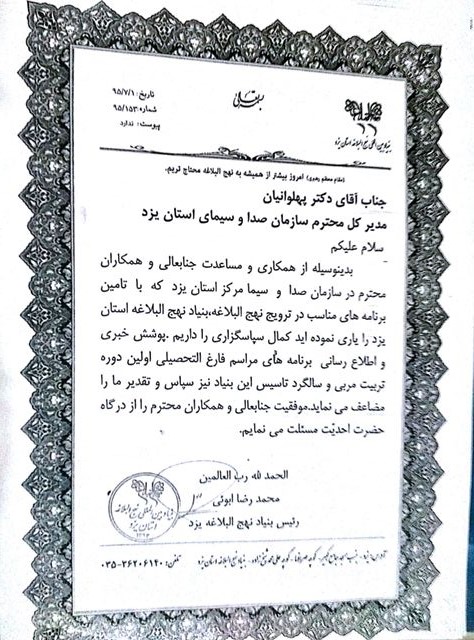 بسمه تعالی
تاریخ: ۹۵/۷/۱
شماره: ۹۵/۱۵۳
پیوست: ندارد
بنیاد بین المللی نهج البلاغه استان یزد
(مقام معظم رهبری) امروز بیشتر از همیشه به نهج البلاغه محتاج تریم.
جناب آقای دکتر پهلوانیان
مدیر کل محترم سازمان صدا و سیمای استان یزد
سلام علیکم
بدینوسیله از همکاری و مساعدت جنابعالی و همکاران
محترم در سازمان صدا و سیما مرکز استان یزد که با تامین
برنامه های مناسب در ترویج نهج البلاغه،بنیاد نهج البلاغه استان
یزد را یاری نموده اید کمال سپاسگزاری را داریم .پوشش خبری
و اطلاع رسانی برنامه های مراسم فارغ التحصیلی اولین دوره
تربیت مربی و سالگرد تاسیس این بنیاد نیز سپاس و تقدیر ما را
مضاعف می نماید.موفقیت جنابعالی و همکاران محترم را از درگاه
حضرت احدیّت مسئلت می نمایم.
الحمد لله رب العالمین
محمد رضا ابوئی
رئیس بنیاد نهج البلاغه یزد
بنیاد بین المللی نهج البلاغه
استان یزد
آدرس: یزد، جنب مسجد جامع کبیر، کوچه، بنیاد نهج البلاغه استان یزد تلفن: ۰۳۵-۳۶۲۰۶۱۴۰